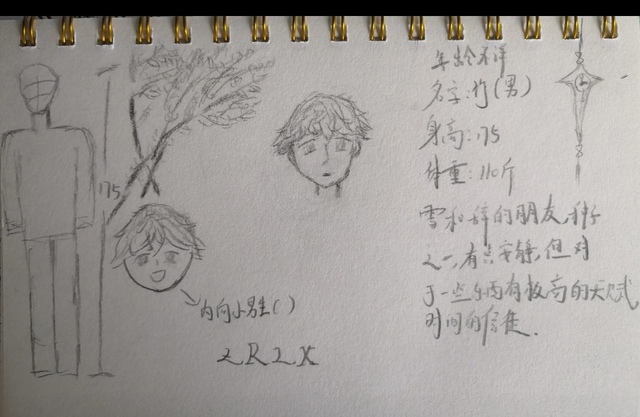 年龄不详
名字:竹(男)
身高:175
体重:110斤
雪和辞的朋友,
之一,有点安静,但对
于一些东西有极高的天赋
时间的信徒.
175
内向小男生()